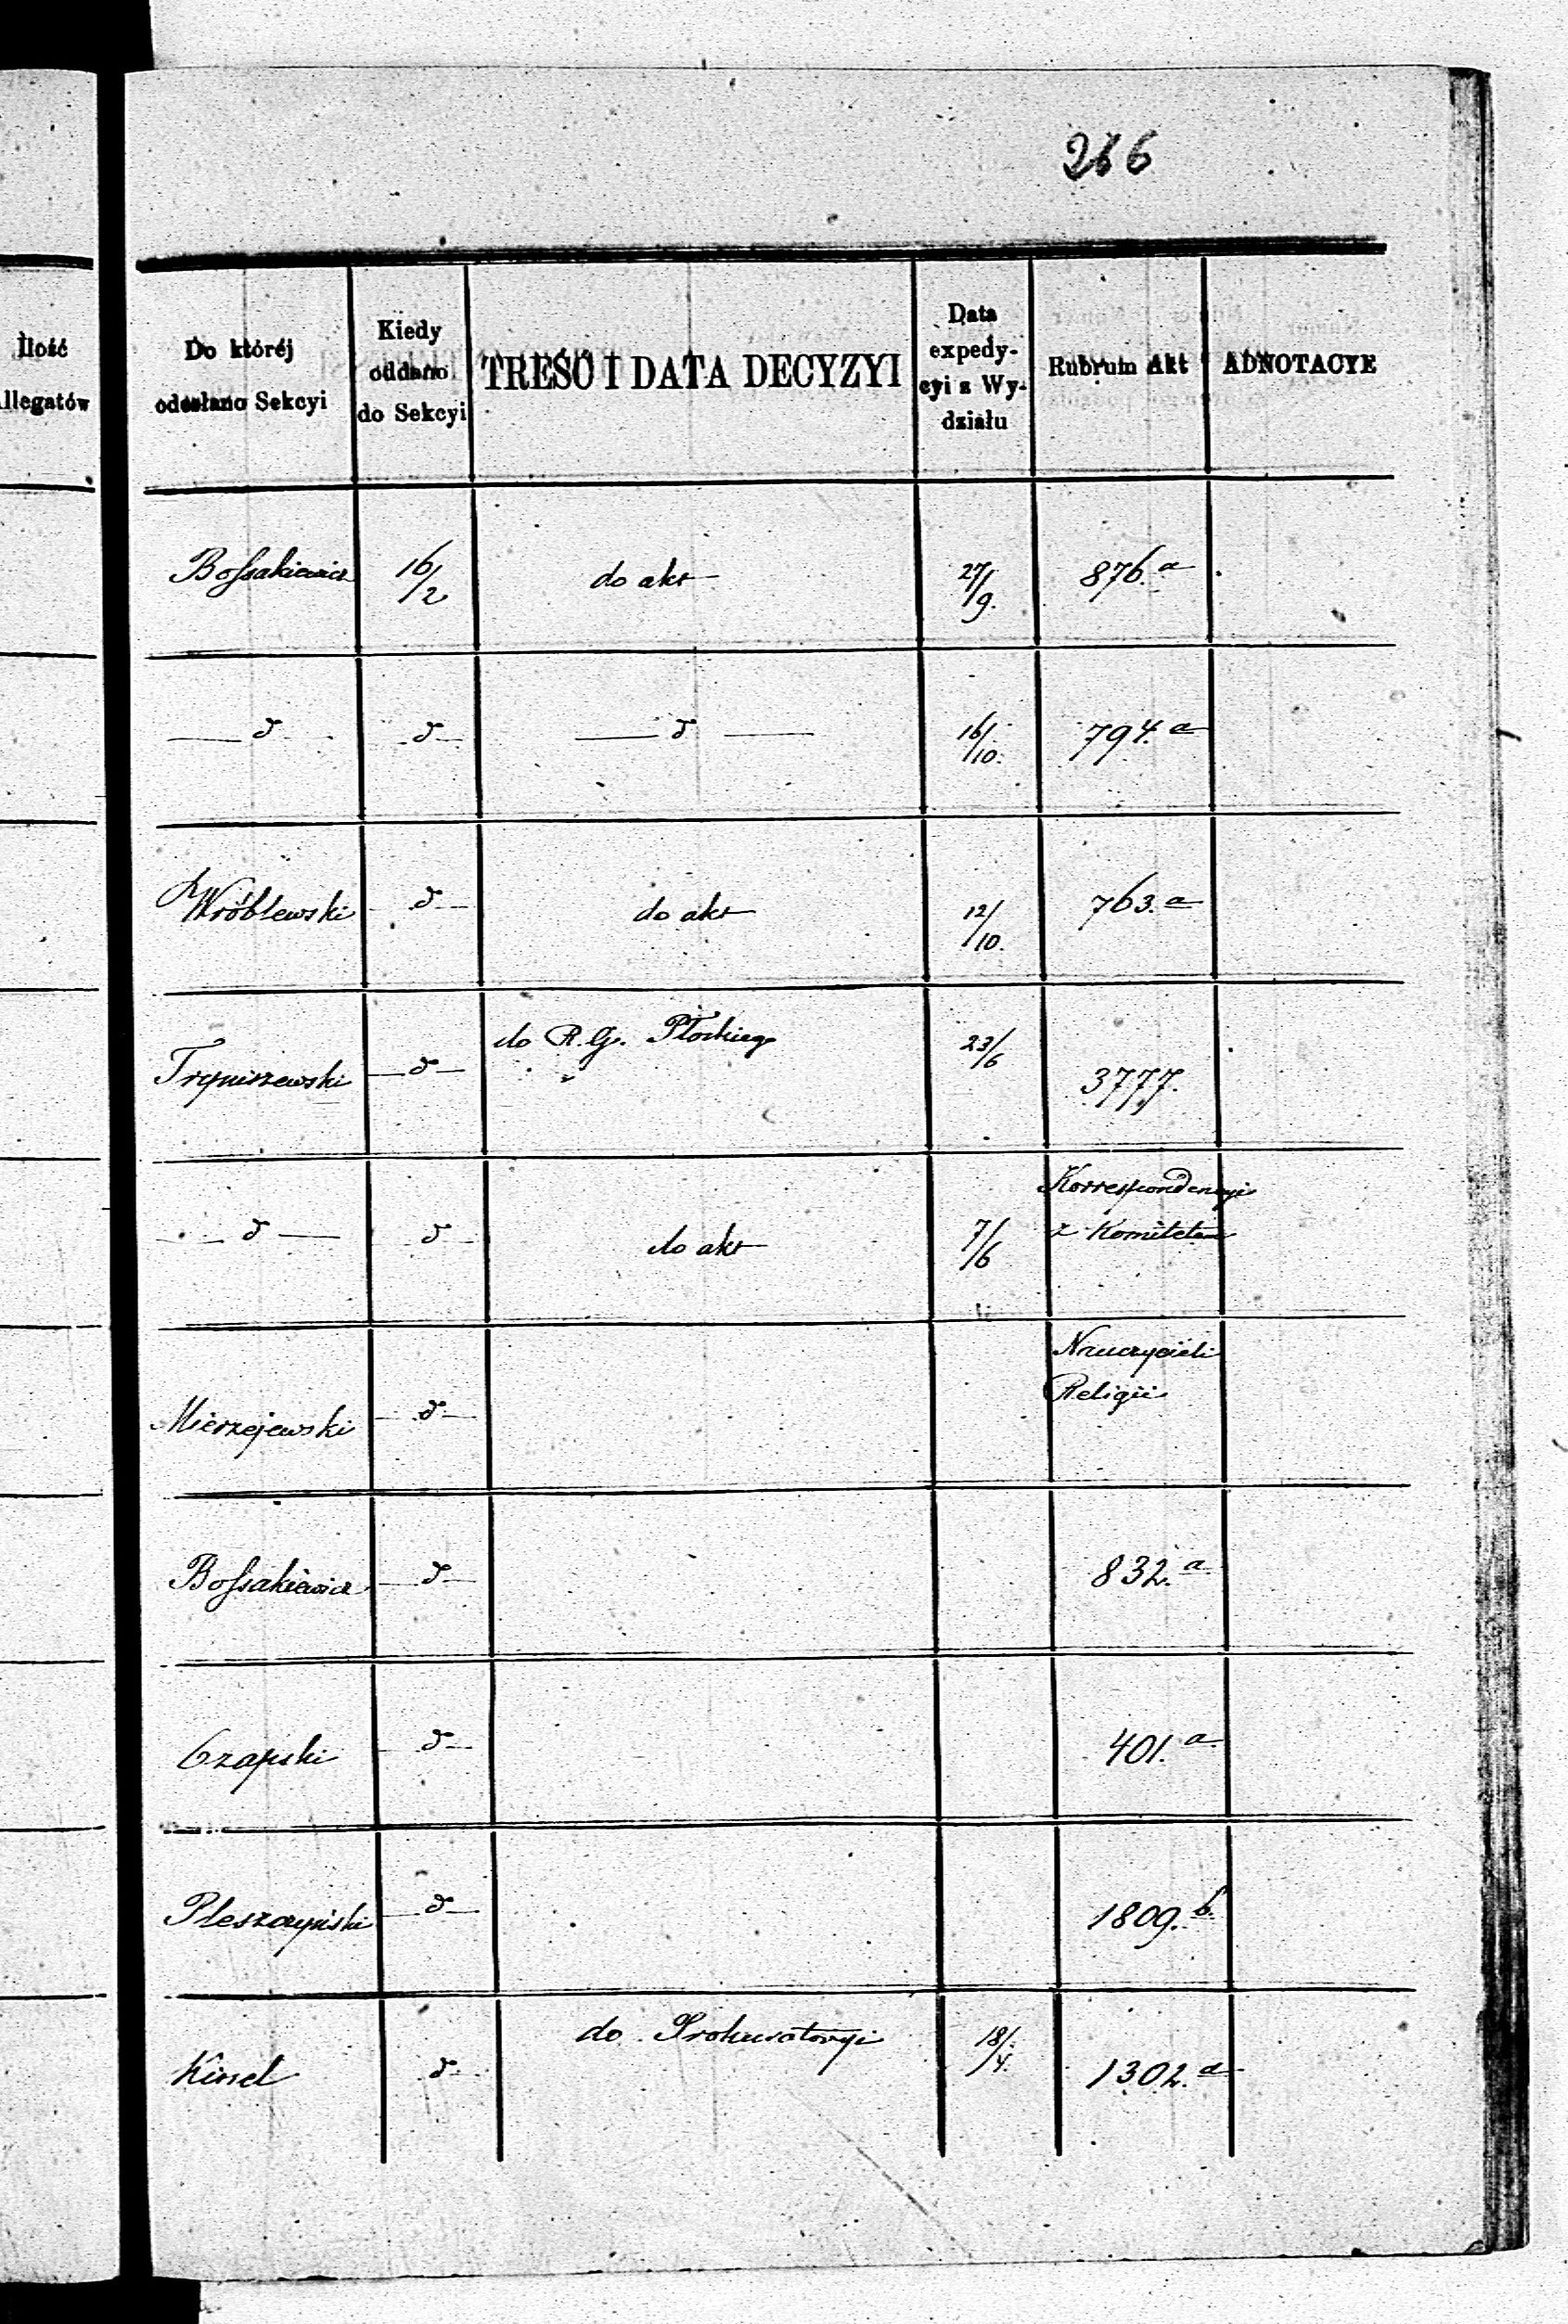 266
Ilość
llegatów
Do któréj
odesłano Sekcyi
Kiedy
oddano
do Sekcyi
TREŚĆ I DATA DECYZYI
Data
expedy-
cyi z Wy-
działu
Rubrum Akt
ADNOTACYE
Bossakiewicz 16/2 do akt 27/9. 876.a
— d — — d — — d — 16/10. 794.a
Wróblewski — d — do akt 12/10. 763.a
— d — do R. G. Płockiego 23/6 3777.
— d — d — do akt 7/6 Korrespondencyi
z Komitetem
Mierzejewski — d — Nauczycieli
Religii
Bossakiewicz — d — 832.a
Czapski — d — 401.a
Pleszczyński — d — 1809.b.
Kinel d — do Prokuratoryi 18/4. 1302.a